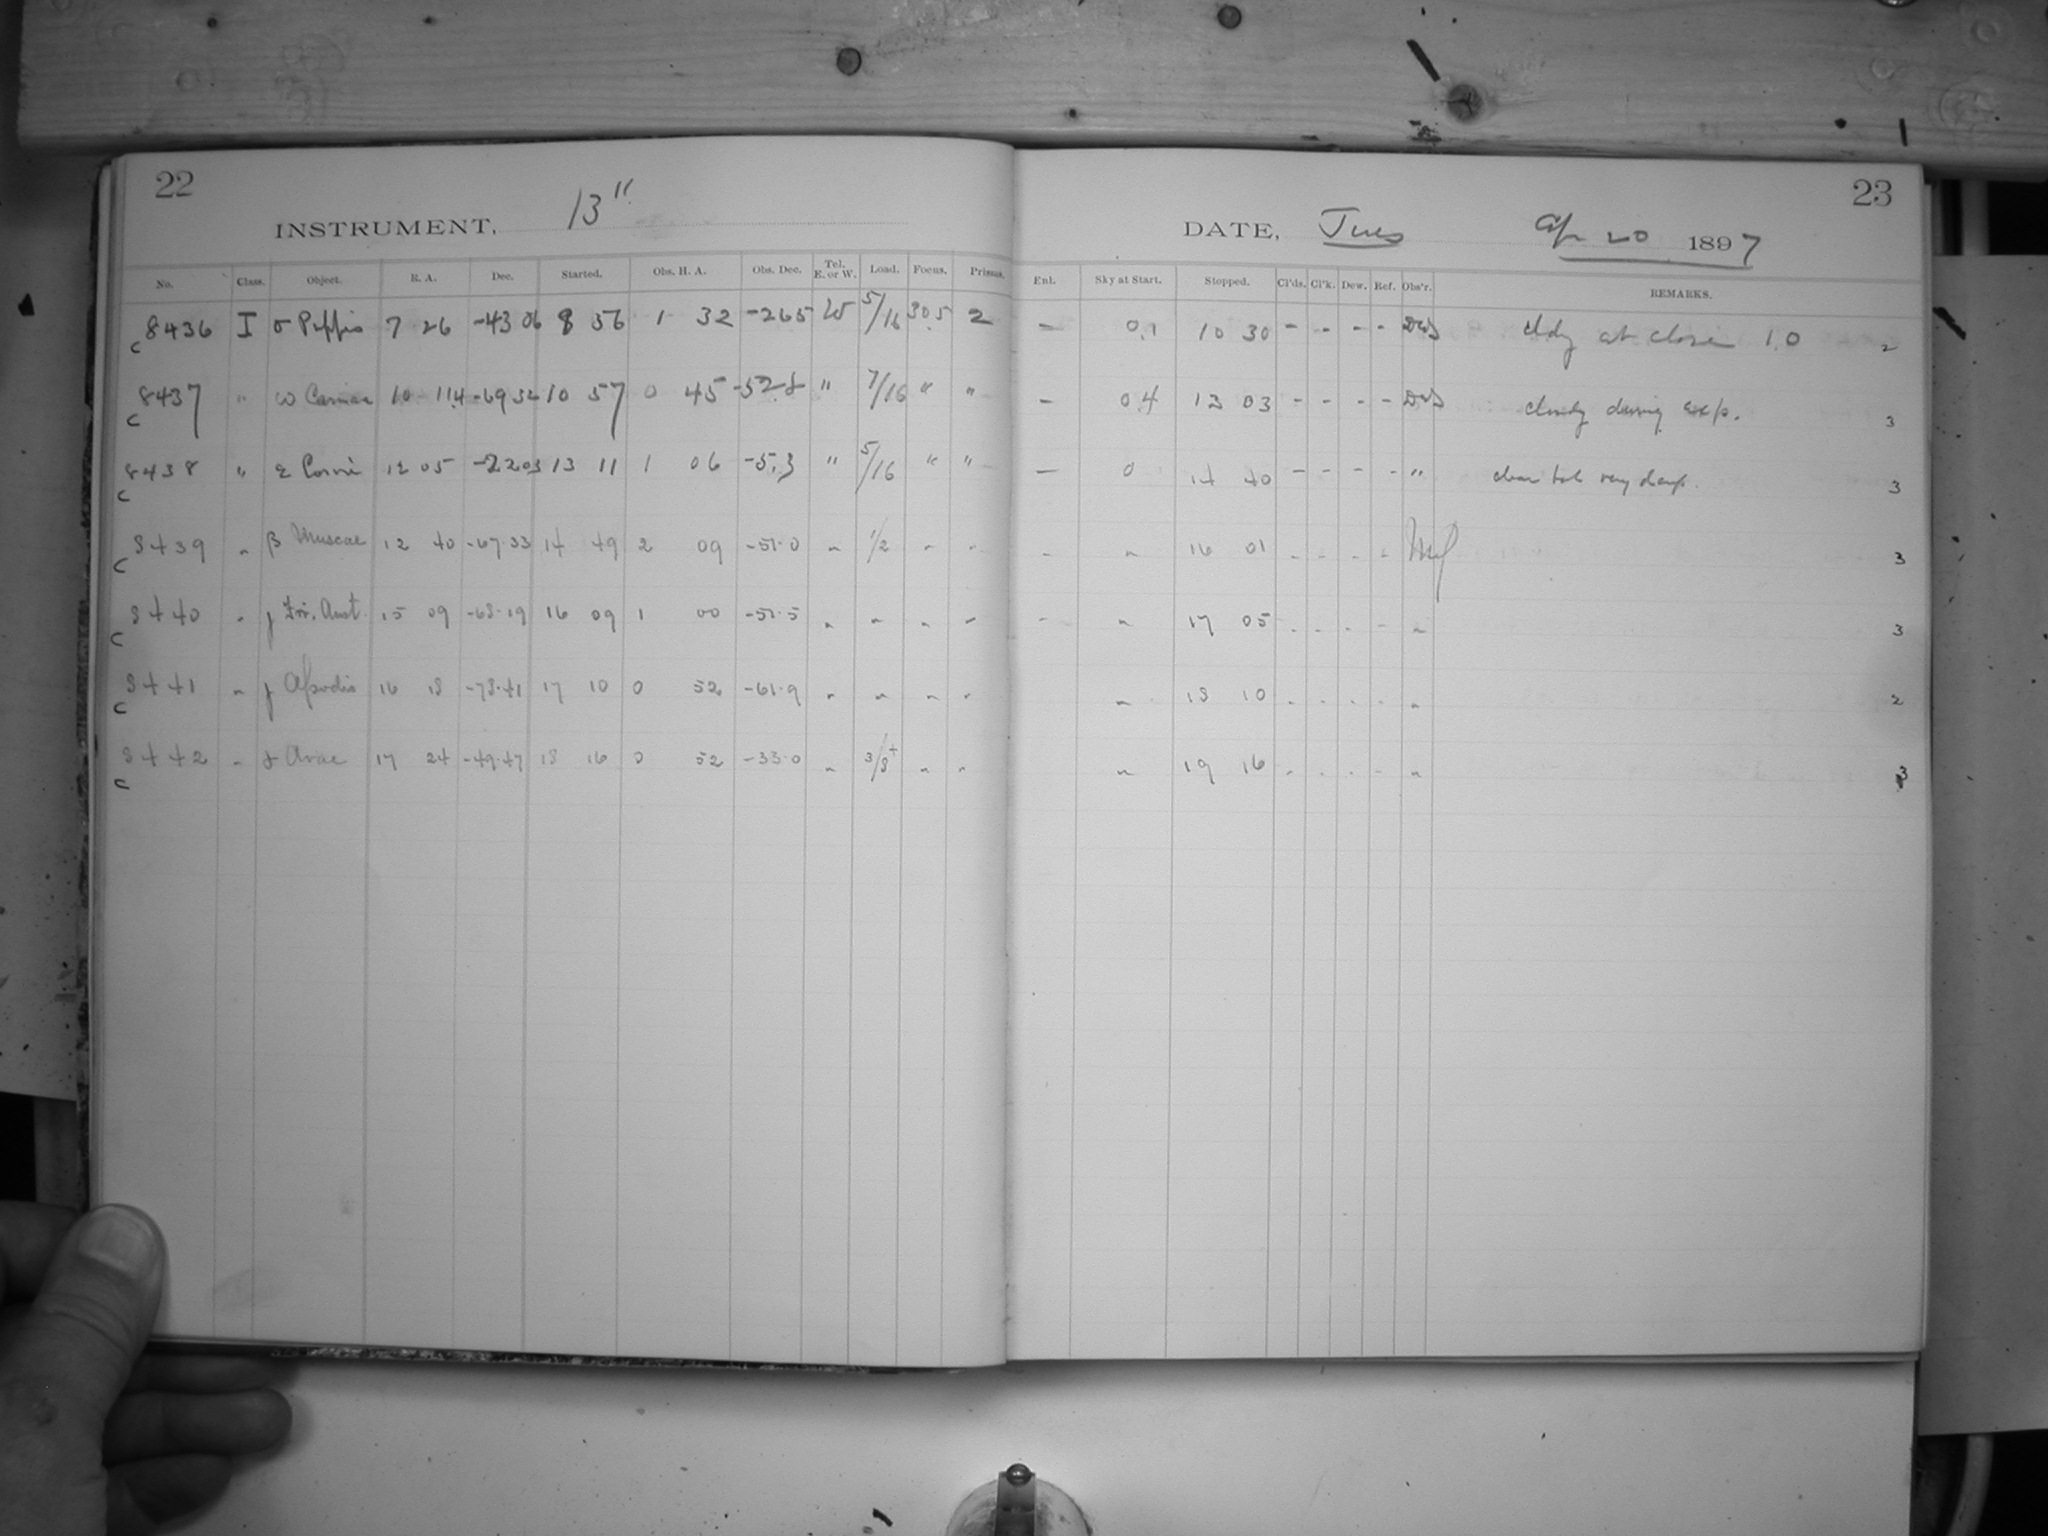 22
INSTRUMENT, 13"
No. Class. Object. R. A. Dec. Started. Obs. H. A. Obs. Dec. Tel. E. or W. Load. Focus. Prisms.
c 8436 I σ Puppis 7 26 -43 06 8 56 1 32 -26.5 W 5/16 30.5 2
c 8437 " ω Carinae 10 11.4 -69 32 10 57 0 45 -52.8 " 7/16 " "
c 8438 " ε Corvi 12 05 -22 03 13 11 1 06 -5.3 " 5/16 " "
c 8439 " β Muscae 12 40 -67.33 14 49 2 09 -51.0 " 1/2 " "
c 8440 " γ Tri. Aust. 15 09 -68.19 16 09 1 00 -51.5 " " " "
c 8441 " γ Apodis 16 18 -78.41 17 10 0 52 -61.9 " " " "
c 8442 " Arae 17 24 -49.47 18 16 0 52 -33.0 " 3/8+ " "
23
DATE, Tues Ap 20 1897
Enl. Sky at Start. Stopped. Cl'ds. Cl'k. Dew. Ref. Obs'r. REMARKS.
— 0.1 10 30 - - - - cldy at close 1.0 2
- 0.4 13 03 - - - - cloudy during exp. 3
— 0 14 40 - - - - " clear but very damp. 3
- " 16 01 - - - - 3
- " 17 05 - - - - " 3
" 18 10 - - - - " 2
" 19 16 - - - - " 3